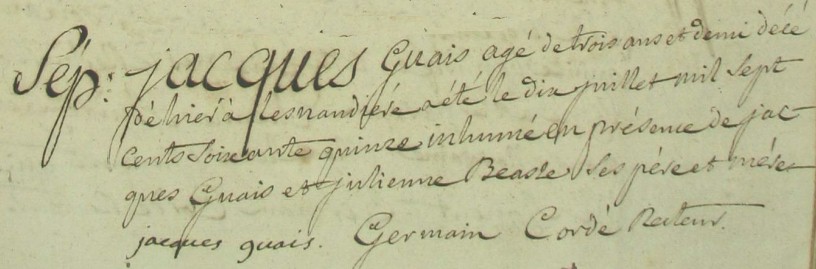 Sép: jacques Guais agé de trois ans et demi décé
dé hier à lesnandiére a été le dix juillet mil sept
cents soixante quinze inhumé en présence de jac
ques Guais et julienne Beasse ses pére et mére
jacques guais. Germain Cordé Recteur.